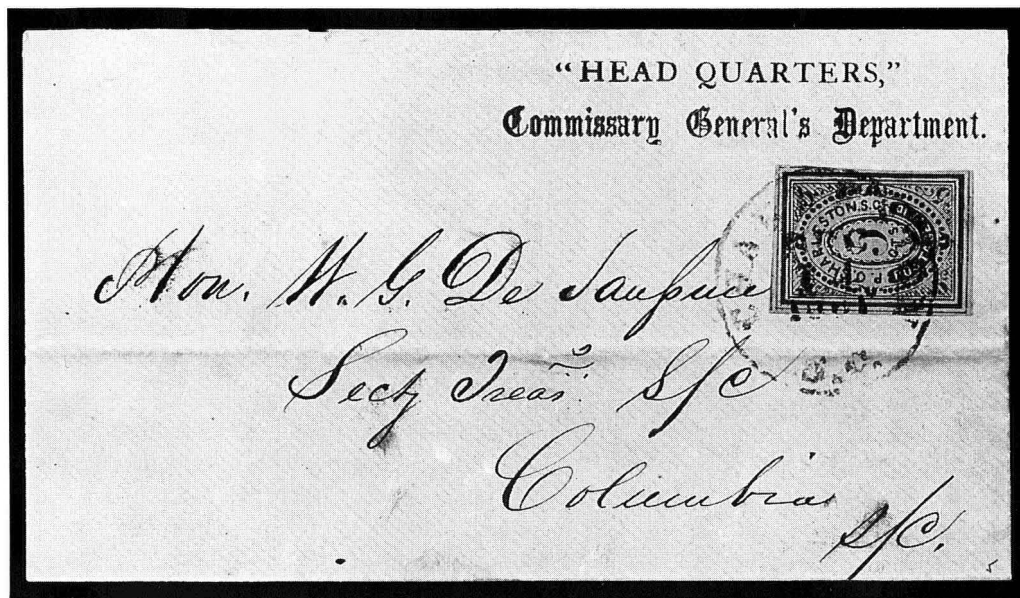 "HEAD QUARTERS,"
Commissary General's Department.
CHARLESTON, S.C.
P.O.
5
Hon. W. G. De Saussure
Secty Treas. S/C
Columbia
S/C.